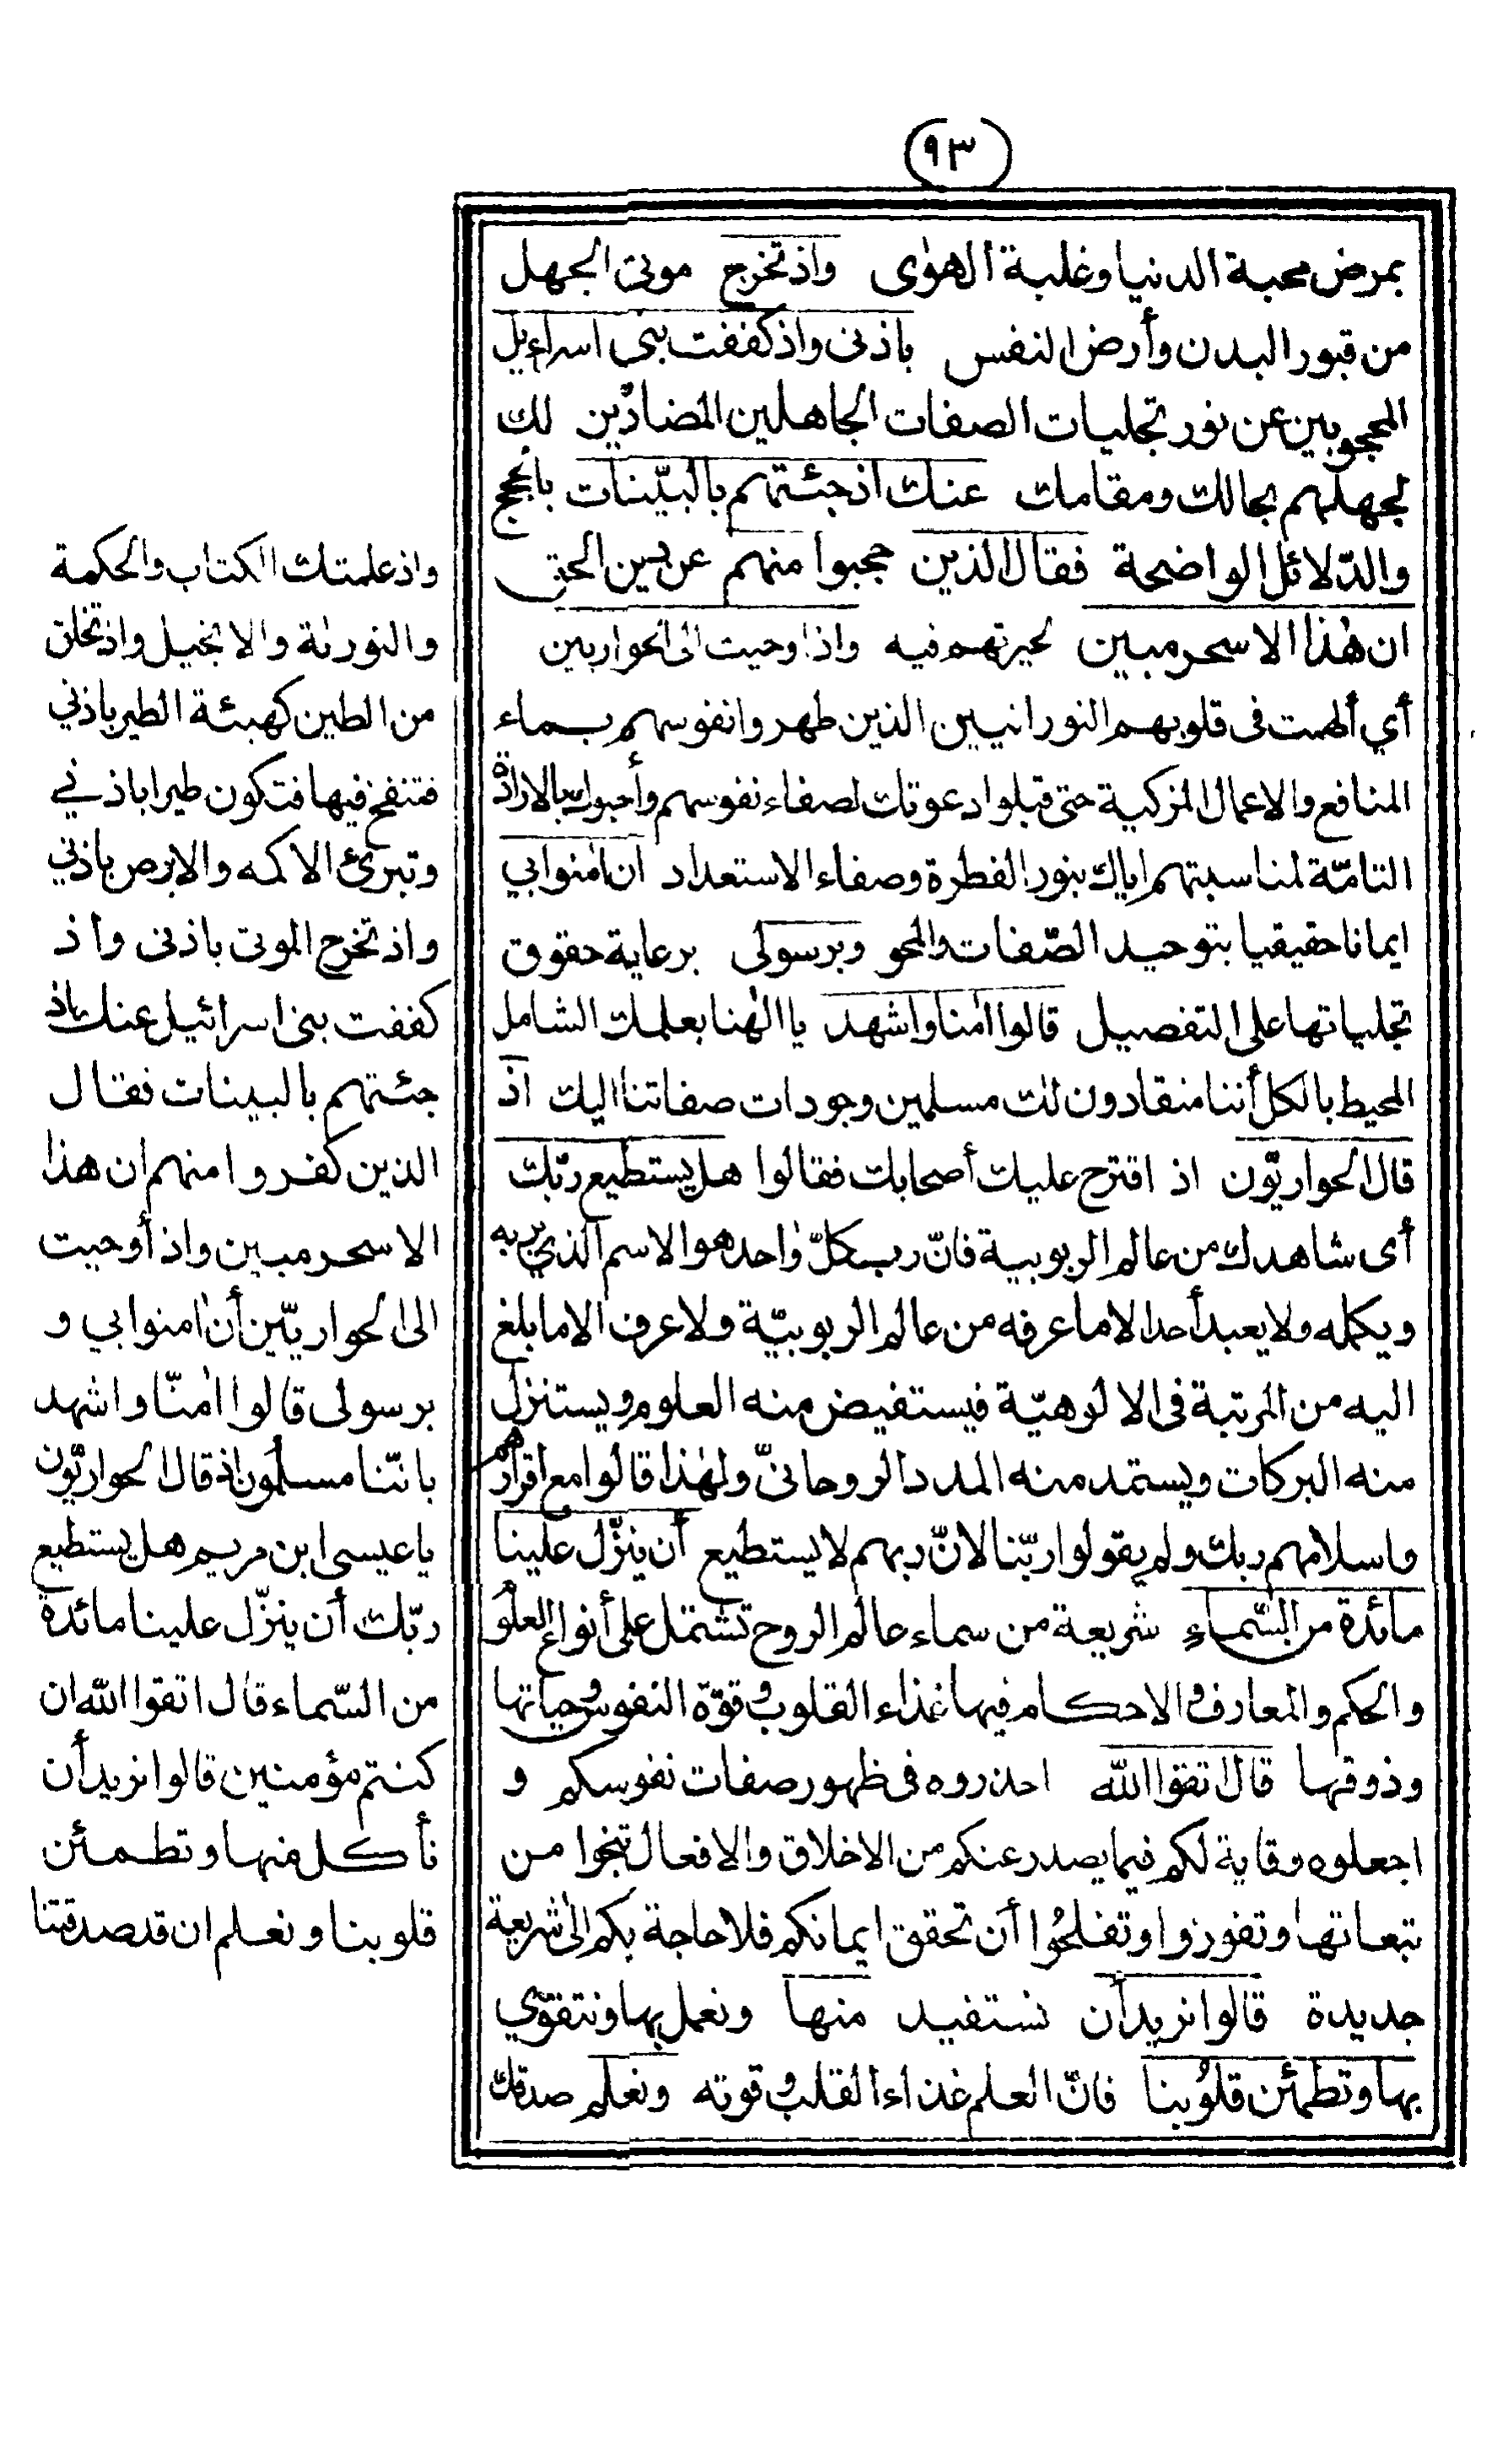 (٩٣)
بمرض محبة الدنيا وغلبة الهوٰى واذ تخرج موتى الجهل
من قبور البدن وأرض النفس باذنى واذ كففت بنى اسراءيل
المحجوبين عن نور تجليات الصفات الجاهلين المضادّين لك
لجهلهم بحالك ومقامك عنك اذ جئتهم بالبيّنات بالحجج
والدّلائل الواضحة فقال الذين حجبوا منهم عن دين الحق
ان هٰذا الا سحر مبين لحيرتهم فيه واذ اوحيت الى الحواريين
أي ألهمت فى قلوبهم النورانيين الذين طهروا نفوسهم بماء
المنافع والاعمال المزكية حتى قبلوا دعوتك لصفاء نفوسهم وأحبوك بالارادة
التامّة لمناسبتهم اياك بنور الفطرة وصفاء الاستعداد ان اٰمنوا بي
ايمانا حقيقيا بتوحيد الصّفات والمحو وبرسولى برعاية حقوق
تجلياتها على التفصيل قالوا اٰمنا واشهد يا الٰهنا بعلمك الشامل
المحيط بالكل أننا منقادون لك مسلمين وجودات صفاتنا اليك اذ
قال الحواريّون اذ اقترح عليك أصحابك فقالوا هل يستطيع ربّك
أى شاهدك من عالم الربوبية فانّ رب كلّ واحد هو الاسم الذي يربه
ويكمله ولا يعبد أحد الا ما عرفه من عالم الربوبيّة ولا عرف الا ما بلغ
اليه من المرتبة فى الالوهيّة فيستفيض منه العلوم ويستنزل
منه البركات ويستمد منه المدد الروحانىّ ولهٰذا قالوا مع اقرارهم
واسلامهم ربك ولم يقولوا ربّنا لانّ ربهم لا يستطيع أن ينزّل علينا
مائدة من السّماء شريعة من سماء عالم الروح تشتمل على أنواع العلو
و الحكم والمعارف والاحكام فيها غذاء القلوب وقوّة النفوس وحياتها
وذوقها قال اتقوا الله احذروه فى ظهور صفات نفوسكم و
اجعلوه وقاية لكم فيما يصدر عنكم من الاخلاق والافعال تنجوا من
تبعاتها وتفوزوا وتفلحُوا أن تحقق ايمانكم فلا حاجة بكم الى شريعة
جديدة قالوا نريد أن نستفيد منها ونعمل بها ونتقوّي
بها وتطمئن قلوُبنا فانّ العلم غذاء القلب وقوته ونعلم صدقك
واذ علمتك الكتاب والحكمة
والتورىٰة والانجيل واذ تخلق
من الطين كهيئة الطير باذني
فتنفخ فيها فتكون طيرا باذني
وتبرئ الاكمه والابرص باذني
واذ تخرج الموتى باذنى واذ
كففت بنى اسرائيل عنك اذ
جئتهم بالبينات فقال
الذين كفروا منهم ان هذا
الا سحر مبين واذ أوحيت
الى الحواريّين أن اٰمنوا بي و
برسولى قالوا اٰمنّا واشهد
باننّا مسلمُون اذ قال الحواريّون
يا عيسى ابن مريم هل يستطيع
ربّك أن ينزّل علينا مائدة
من السّماء قال اتقوا الله ان
كنتم مؤمنين قالوا نريد أن
نأكل منها وتطمئن
قلوبنا ونعلم ان قد صدقتنا